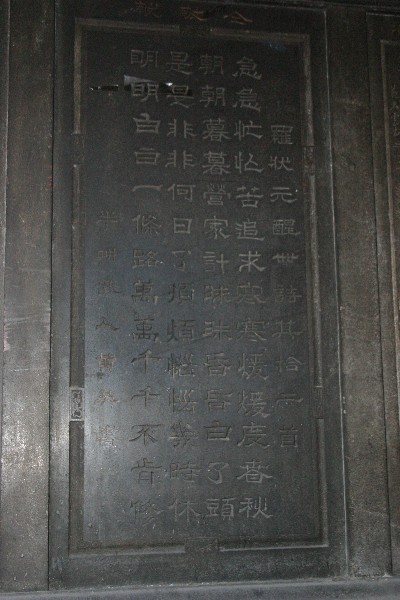 羅狀元醒世詩其拾首
急急忙忙苦追求寒寒煖煖度春秋
朝朝暮暮營家計昧昧昏昏白了頭
是是非非何日了煩煩惱惱幾時休
明明白白一條路萬萬千千不肯修
書